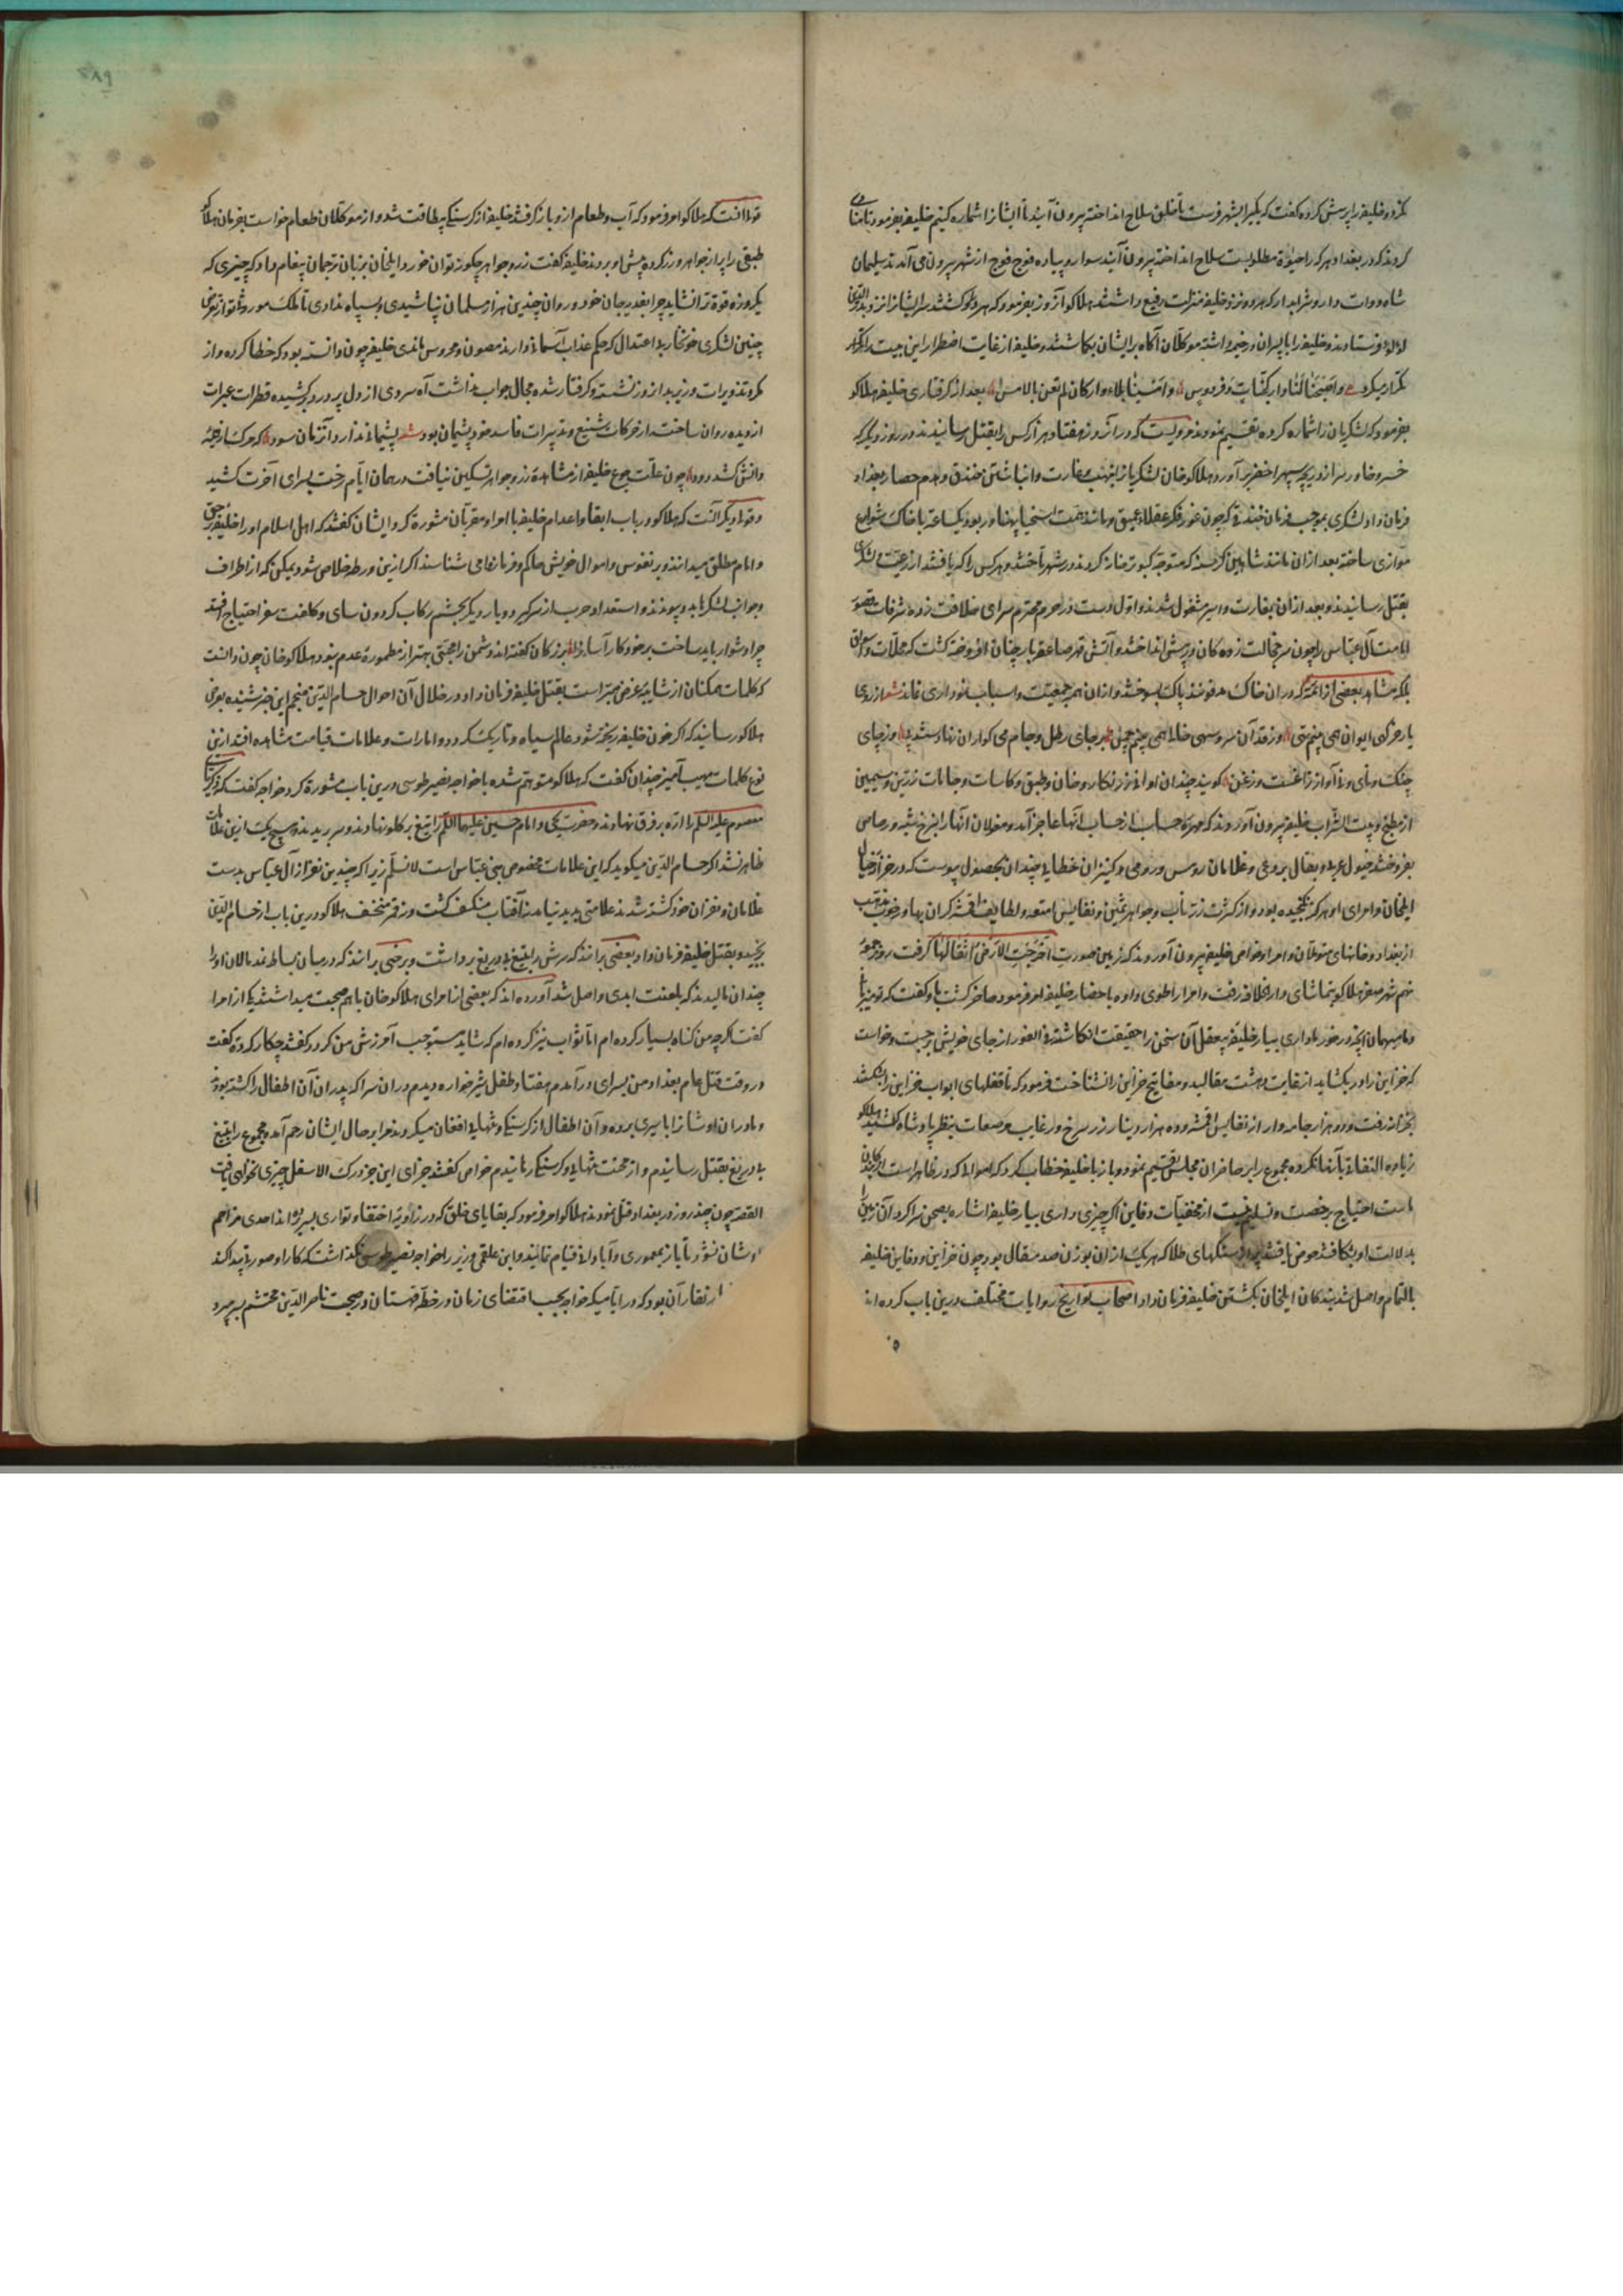 کرده خلیفه را پرسش کرد و گفت که بگیر بشهر فرست تا خلق سلاح انداخته بیرون آیند تا ایشان را شماره کنیم خلیفه بفرمود تا منادی
کردند که در بغداد هر که را حیوة مطلوبست سلاح انداخته بیرون آیند سوار و پیاده فوج فوج از شهر بیرون می آمدند سلیمان
شاه و دوات دار و شرابدار که هر دو نزد خلیفه منزلت رفیع داشتند هلاکو آنروز بفرمود که هر دو کشتند سر ایشان را نزد بدر الدین
لولو فرستادند و خلیفه را با پسران در خیمه داشته موکلان آگاه بر ایشان بگماشتند و خلیفه از غایت اضطرار این بیت را تکرار
تکرار میکرد واصبحنا لنا دار کجنات و فردوس وامسینا بلا دار کان لم تغن بالامس بعد از گرفتاری خلیفه هلاکو
بفرمود که لشکریان را شماره کرده تقسیم نمودند مرویست که در آنروز هفتاد هزار کس را بقتل رسانیدند و در روز دیگر که
خسرو خاور سر از دریچه سپهر اخضر بر آورد هلاکو خان لشکریان را بنهب و غارت و انباشتن خندق و هدم حصار بغداد
فرمان داد لشکری بموجب فرمان خندقی که چون غور فکر عقلا عمیق و مانند همت اسخیا پهناور بود یکساعته با خاک شوارع
موازی ساخته بعد از آن مانند شاهین گرسنه که متوجه کبوتر خانه گردد در شهر تاختند و هر کس را که یافتند از رعیت و لشکری
بقتل رسانیدند و بعد از آن بغارت و اسیر مشغول شدند و اول دست در حرم محترم سرای خلافت زده شرفات قصور
امامت آل عباس را چون سر خجالت زده کان در پیش انداختند و آتش قهر صاعقه بار چنان افروخته گشت که محلات و سواق
بلکه مشاهد بعضی از ائمه که در آن خاک مدفونند پاک بسوختند و از آن همه جمعیت و اسباب نموداری نماند شعر از روی
یار خرگهی ایوان همی بینم تهی وز قد آن سرو سهی خالی همی بینم چمن بر جای رطل و جام می گوران نهادستند پی بر جای
چنگ و نای و نی آواز زاغست و زغن گویند چندان اوانی زرنگار و خان و طبق و کاسات و جامات زرین و سیمین
از مطبخ و بیت الشراب خلیفه بیرون آوردند که مهره حساب از حساب آنها عاجز آمد و مغولان آنها را بنرخ شبه و رصاص
بفروختند خیول عربی و بغال بردعی و غلامان روس و رومی و کنیزان خطایی چندان بحصول پیوست که در خزانه خیال
ایلخان و امرای او هرگز نگنجیده بود و از کثرت زر ناب و جواهر ثمین و نفایس امتعه و لطایف اقمشه گران بها و ضروب مذهب
از بغداد و خانهای متمولان و امرا و خواص خلیفه بیرون آوردند که زمین صورت اخرجت الارض اثقالها گرفت روز جمعه
نهم شهر صفر هلاکو بتماشای دار الخلافه رفت و امرا را طوی داده باحضار خلیفه امر فرمود حاضر گشت با او گفت که تو میزبانی
و ما میهمان آنچه در خور ما داری بیار خلیفه بیعقل آن سخن را حقیقت انگاشته فی الفور از جای خویش برجست و خواست
که خزاین را در بگشاید از غایت دهشت مقالید و مفاتیح خزاین را نشناخت فرمود که تا قفلهای ابواب خزاین را بشکستند
بخزانه رفت و دو هزار جامه وار از نفایس اقمشه و ده هزار دینار زر سرخ و رغایب مرصعات بنظر پادشاه کشید هلاکو
زیاده التفاتی بآنها نکرده مجموع را بر حاضران مجلس تقسیم نمود و باز با خلیفه خطاب کرد که اموالی که در ظاهر است از
ماست احتیاج برخصت و تسلیم نیست از مخفیات دفاین اگر چیزی داری بیار خلیفه اشاره بصحن سرا کرد آن زمین را
بدلالت او بشکافتند حوضی یافتند پر از سنگهای طلا که هر یک از آن بوزن صد مثقال بود چون خزاین و دفاین خلیفه
بالتمام واصل شد بندگان ایلخان بکشتن خلیفه فرمان داد اصحاب تواریخ روایات مختلف درین باب کرده اند
قولی آنست که هلاکو امر فرمود که آب و طعام ازو باز گرفتند خلیفه از گرسنگی بیطاقت شد و از موکلان طعام خواست بفرمان هلاکو
طبقی را پر از جواهر و زر کرده پیش او بردند خلیفه گفت زر و جواهر چگونه توان خورد ایلخان بزبان ترجمان پیغام داد که چیزی که
یکروزه قوت ترا نشاید چرا بفدیه جان خود و روان چندین هزار مسلمان نپاشیدی و بسپاه ندادی تا ملک موروث تو از تعرض
چنین لشکری خونخوار بی اعتدال که حکم عذاب آسمانی دارند مصون و محروس ماندی خلیفه چون دانسته بود که خطا کرده و از
مکر و تزویرات وزیر بداندوز نشسته و گرفتار شده مجال جواب نداشت آه سردی از دل پر درد بر کشیده قطرات عبرات
از دیده روان ساخت از حرکات شنیع و تدبیرات فاسد خود پشیمان بود شعر پشیمانی ندارد آنزمان سود که مرکب از عرصه
دانش کشد دود چون علت جوع خلیفه از مشاهده زر و جواهر تسکین نیافت در همان ایام رخت بسرای آخرت کشید
و قول دیگر آنست که هلاکو در باب ابقا و اعدام خلیفه با امرا و مقربان مشورة کرد ایشان گفتند که اهل اسلام او را خلیفه بحق
و امام مطلق میدانند و بر نفوس و اموال خویش حاکم و فرمانفرمای شناسند اگر ازین ورطه خلاص شود یمکن که از اطراف
و جوانب لشکر بدو پیوندند و استعداد حرب از سر گیرد و بار دیگر بجشم رکاب گردون سای و کلفت سفر احتیاج افتد
چرا دشوار باید ساخت بر خود کار آسان را بزرگان گفته اند دشمن را محبتی بهتر از مطموره عدم نبود هلاکو خان چون دانست
که کلمات ممکنان از شایبه غرض مبراست بقتل خلیفه فرمان داد در خلال آن احوال حسام الدین منجم این خبر شنیده بعرض
هلاکو رسانید که اگر خون خلیفه ریخته شود عالم سیاه و تاریک گردد و امارات و علامات قیامت مشاهده افتد ازین
نوع کلمات مهیب آمیز چندان گفت که هلاکو متوهم شده با خواجه نصیر طوسی درین باب مشورة کرد خواجه گفت که زکریای
معصوم علیه السلم را اره بر فرق نهادند و حضرت یحیی و امام حسین علیهما السلم را تیغ بر گلو نهادند و سر بریدند و هیچ یک ازین علامات
ظاهر نشد اگر حسام الدین میگوید که این علامات مخصوص ببنی عباس است لا نسلم زیرا که چندین نفر از آل عباس بدست
غلامان و نفران خود کشته شدند علامتی پدید نیامد نه آفتاب منکسف گشت و نه قمر منخسف هلاکو درین باب از حسام الدین
برنجید و بقتل خلیفه فرمان داد بعضی برانند که سرش را بتیغ بیدریغ برداشت و برخی برانند که در میان بساط نمد مالان او را
چندان مالیدند که بلعنت ابدی واصل شد آورده اند که بعضی از امرای هلاکو خان با هم صحبت میداشتند یکی از امرا
گفت اگرچه من گناه بسیار کرده ام اما ثواب نیز کرده ام که شاید مستوجب آمرزش من گردد گفتند چکار کرده گفت
در وقت قتل عام بغداد من بسرای درآمدم هفتاد طفل شیر خواره دیدم در آن سرا که پدران آن اطفال را کشته بودند
و مادران اوشان را باسیری برده و آن اطفال از گرسنگی و تنهایی افغان میکردند مرا بر حال ایشان رحم آمد و مجموع را بتیغ
بیدریغ بقتل رسانیدم و از محنت تنهایی و گرسنگی رهانیدم خواص گفتند جزای این جز درک الاسفل چیزی نخواهی یافت
القصه چون چند روز در بغداد قتل نمودند هلاکو امر فرمود که بقایای خلق که در زاویه اختفا و تواری بسر برده اند احدی مزاحم
اوشان نشود تا باز بمعموری و آبادانی قیام نمایند و ابن علقمی وزیر را خواجه نصیر طوسی نگذاشت که کار او صورتی پیدا کند
ار نقار آن بود که در ایامیکه خواجه بحسب اقتضای زمان در خطه قهستان در صحبت ناصر الدین محتشم بسر میبرد